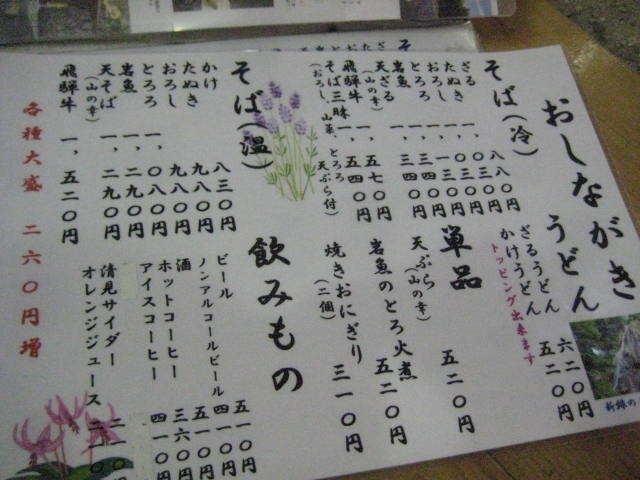 おしながき
そば(冷)
ざる 八八〇円
たぬき
おろし
とろろ
岩魚
天ざる
(山の幸)
飛騨牛 一、五七〇円
そば三昧 一、五四〇円
(おろし、山菜、とろろ
天ぷら付)
うどん
ざるうどん 六二〇円
かけうどん 五二〇円
トッピング出来ます
単品
天ぷら 五二〇円
(山の幸)
岩魚のとろ火煮 五二〇円
焼きおにぎり 三一〇円
(二個)
そば(温)
かけ 八三〇円
たぬき 九八〇円
おろし 九八〇円
とろろ 一、〇八〇円
岩魚 一、二九〇円
天そば 一、二九〇円
(山の幸)
飛騨牛 一、五二〇円
飲みもの
ビール 五一〇円
ノンアルコールビール 四一〇円
酒 五一〇円
ホットコーヒー 三六〇円
アイスコーヒー 四一〇円
清見サイダー 二一〇
オレンジジュース 二一〇
各種大盛 二六〇円増
新緑の